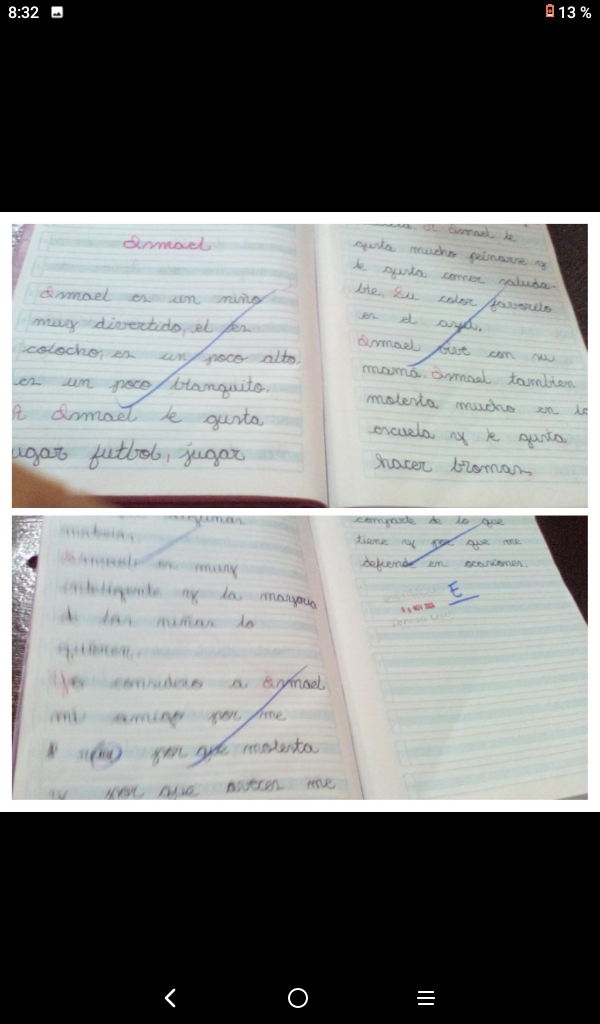 8:32
13 %
Ismael
Ismael es un niño
muy divertido, él es
colocho, es un poco alto,
es un poco blanquito.
A Ismael le gusta
ugar futbol, jugar
A Ismael le
gusta mucho peinarse y
le gusta comer saluda-
ble, Su color favorito
es el azul.
Ismael vive con su
mamá. Ismael tambien
molesta mucho en la
escuela y le gusta
hacer bromas
Ismael es muy
inteligente y la mayoria
d las niñas lo
quieren.
Yo considero a Ismael
mi amigo por me
por que molesta
y por que aveces me
comparte de lo que
tiene y por que me
defiende en ocasiones.
E